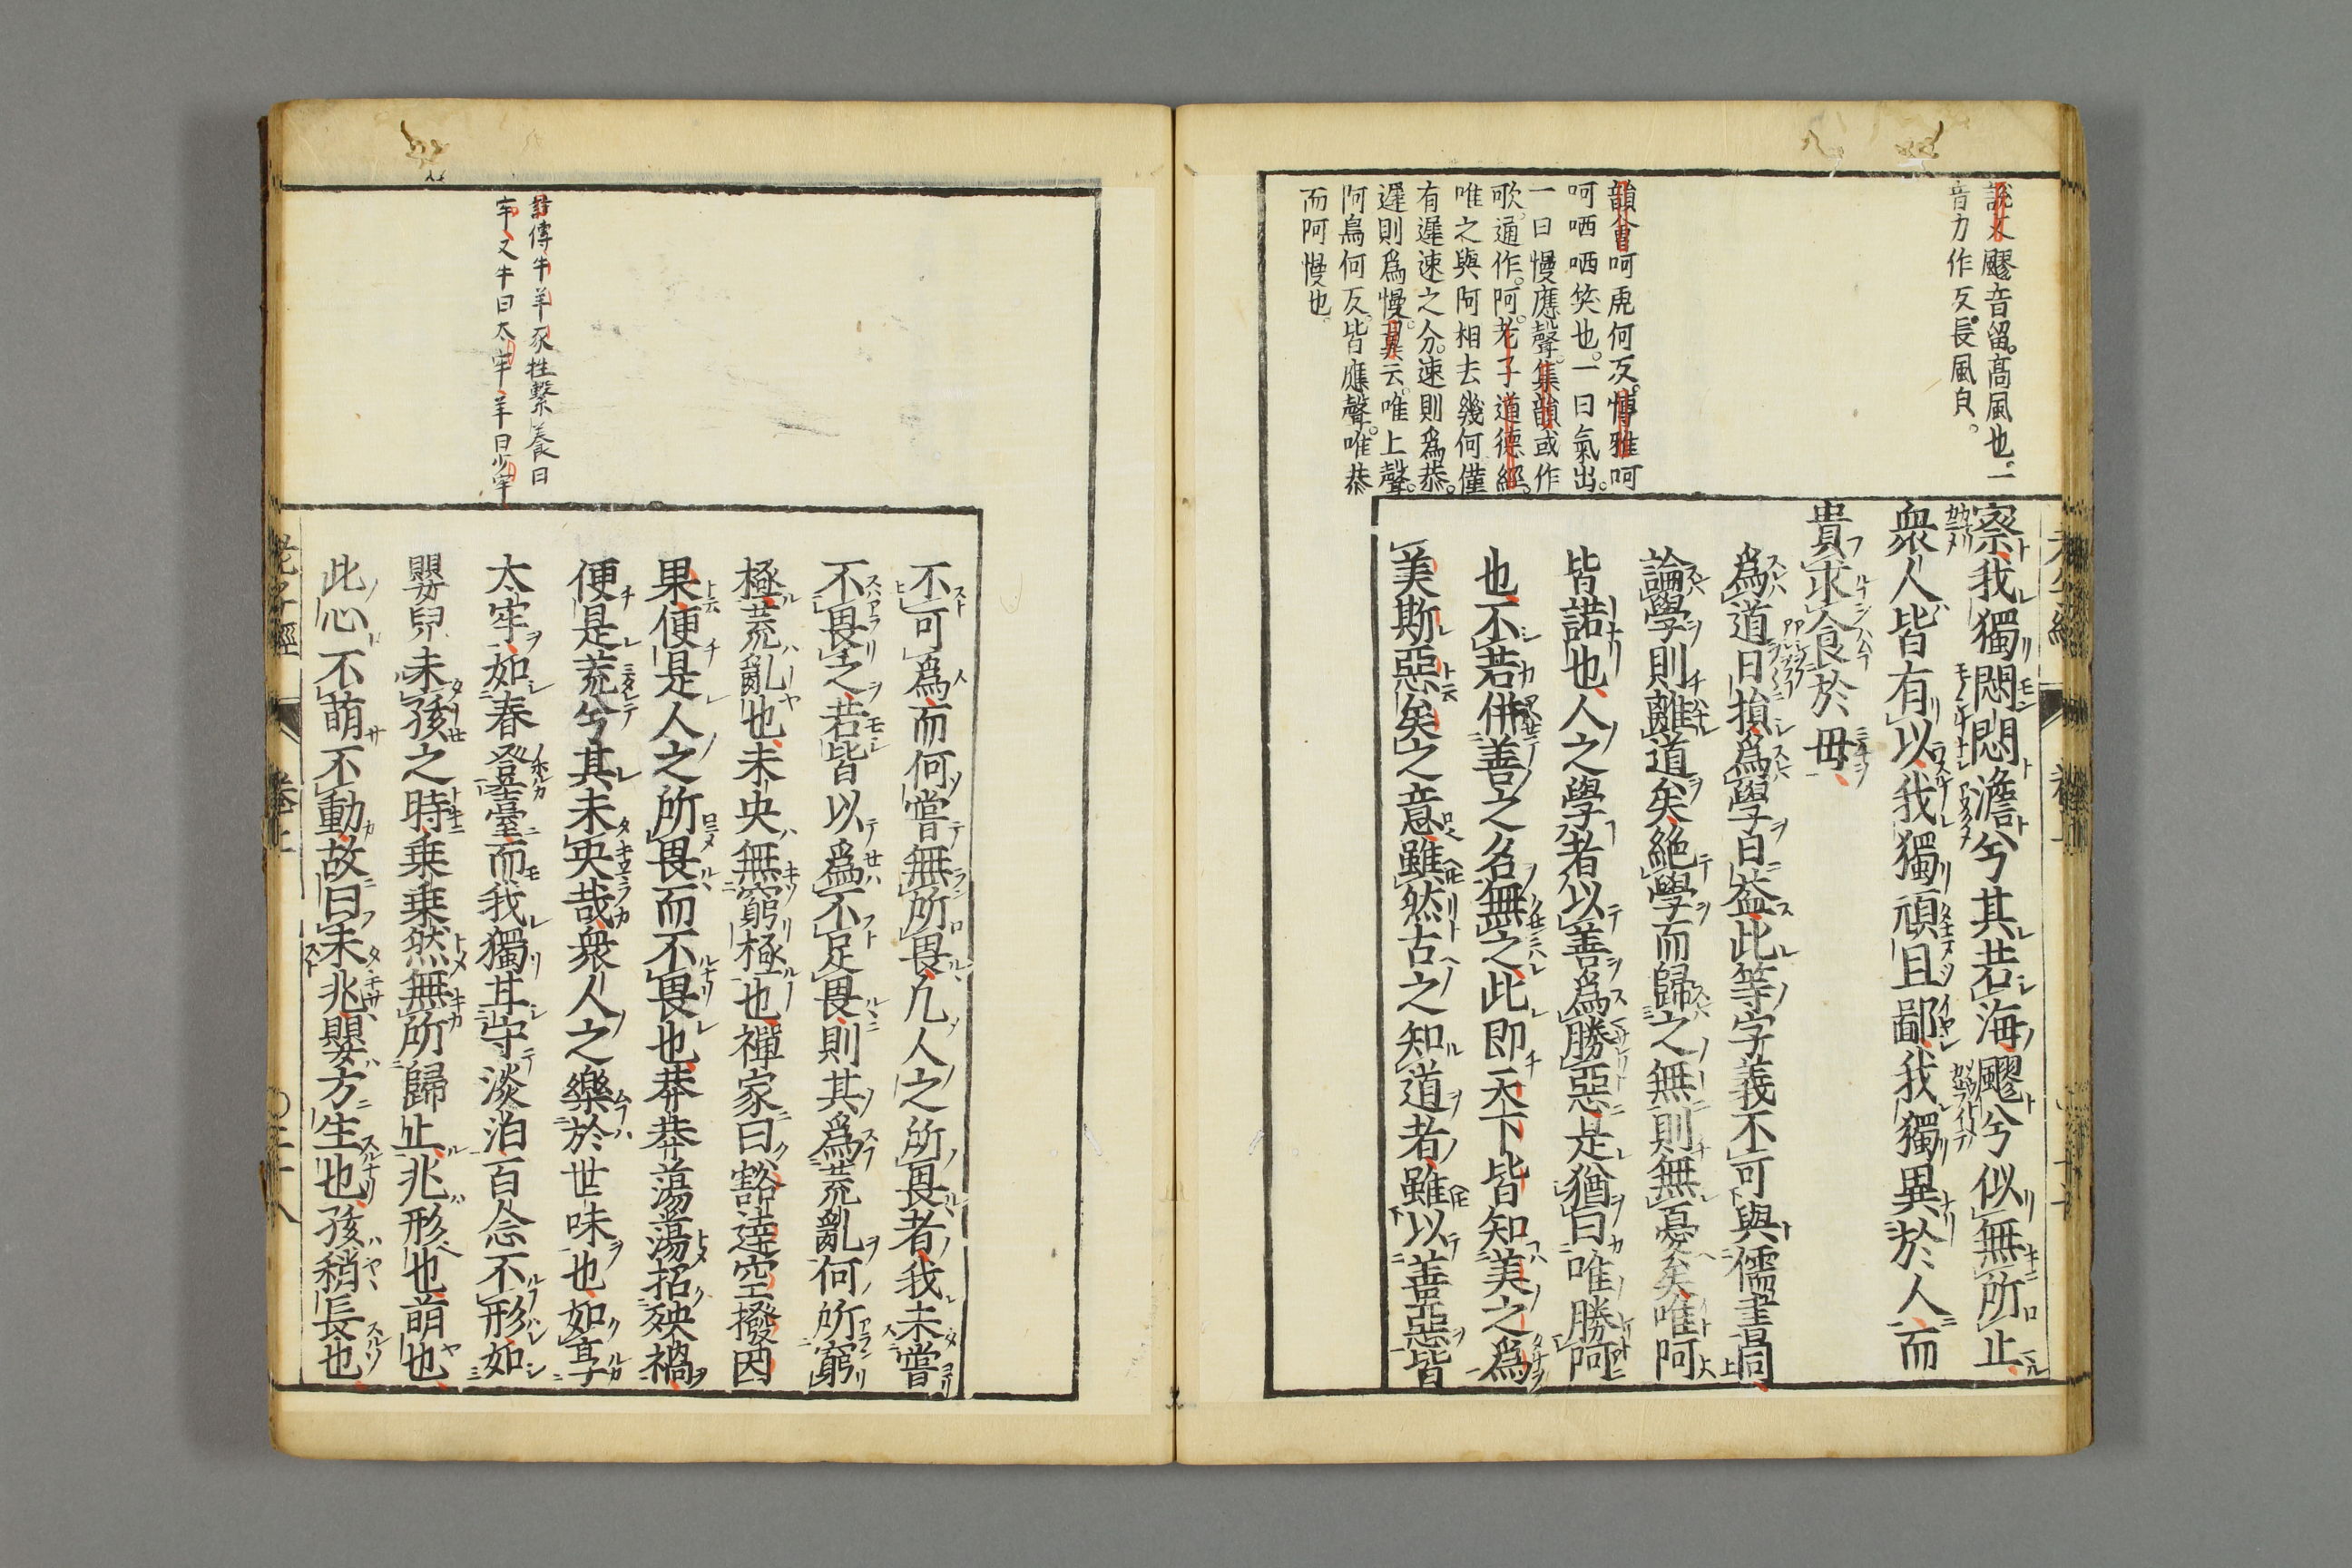 說文飂音留。高風也。一
音力作反。長風皃。
韻會呵虎何反。博雅呵
呵哂哂笑也。一曰氣出。
一曰慢應聲。集韻或作
歌。通作。阿。老子道德經。
唯之與阿相去幾何僅
有遲速之分。速則爲恭。
遲則爲慢。翼云。唯上聲。
阿烏何反。皆應聲。唯恭
而阿慢也。
察我獨悶悶澹兮其若海飂兮似無所止
衆人皆有以我獨頑且鄙我獨異於人而
貴求食於母
爲道日損爲學日益此等字義不可與儒書同
論學則離道矣絕學而歸之無則無憂矣唯阿
皆諾也人之學者以善爲勝惡是猶曰唯勝阿
也不若併善之名無之此即天下皆知美之爲
美斯惡矣之意雖然古之知道者雖以善惡皆
詩傳牛羊豕牲繫養曰
牢又牛曰太牢羊曰少牢
不可爲而何嘗無所畏凡人之所畏者我未嘗
不畏之若皆以爲不足畏則其爲荒亂何所窮
極荒亂也未央無窮極也禪家曰豁達空撥因
果便是人之所畏而不畏也莽莽蕩蕩招殃禍
便是荒兮其未央哉衆人之樂於世味也如享
太牢如春登臺而我獨甘守淡泊百念不形如
嬰兒未孩之時乗乗然無所歸止兆形也萌也
此心不萌不動故曰未兆嬰方生也孩稍長也
老子經
卷上
〇二十八